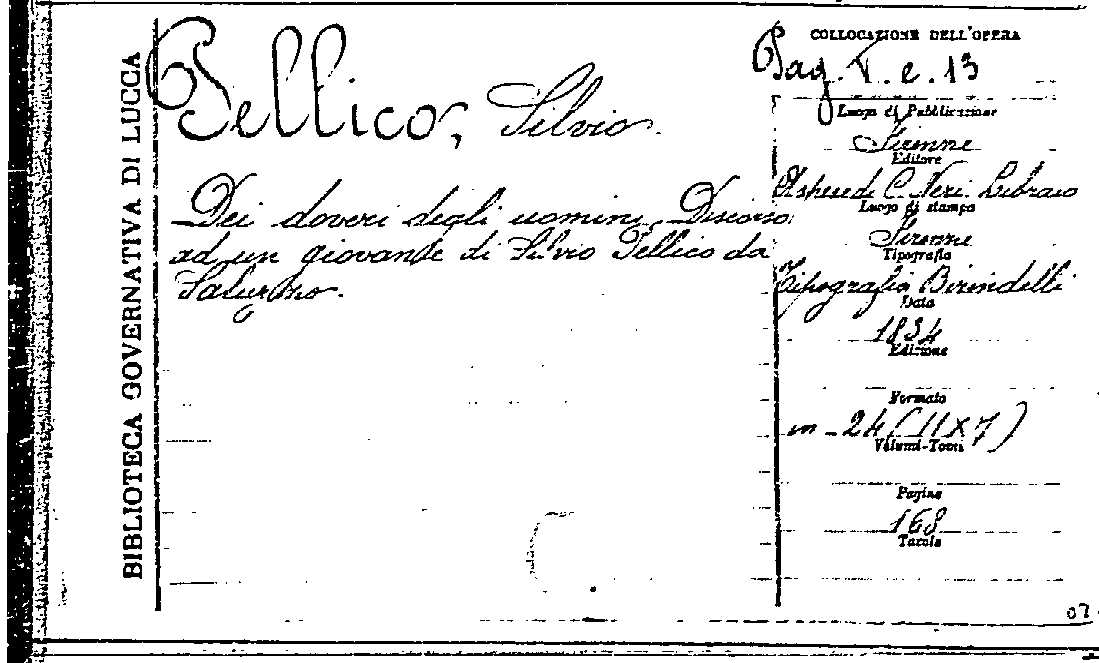 BIBLIOTECA GOVERNATIVA DI LUCCA
Pellico, Silvio.
Dei doveri degli uomini, Discorso
ad un giovane di Silvio Pellico da
Saluzzo.
COLLOCAZIONE DELL'OPERA
Pag. V. e. 13
Luogo di Pubblicazione
Firenze
Editore
C. Neri Libraio
Luogo di stampa
Firenze
Tipografia
Tipografia Birindelli
Data
1834
Edizione
Formato
in-24 (11x7)
Volumi-Tomi
Pagine
168
Tavole
07